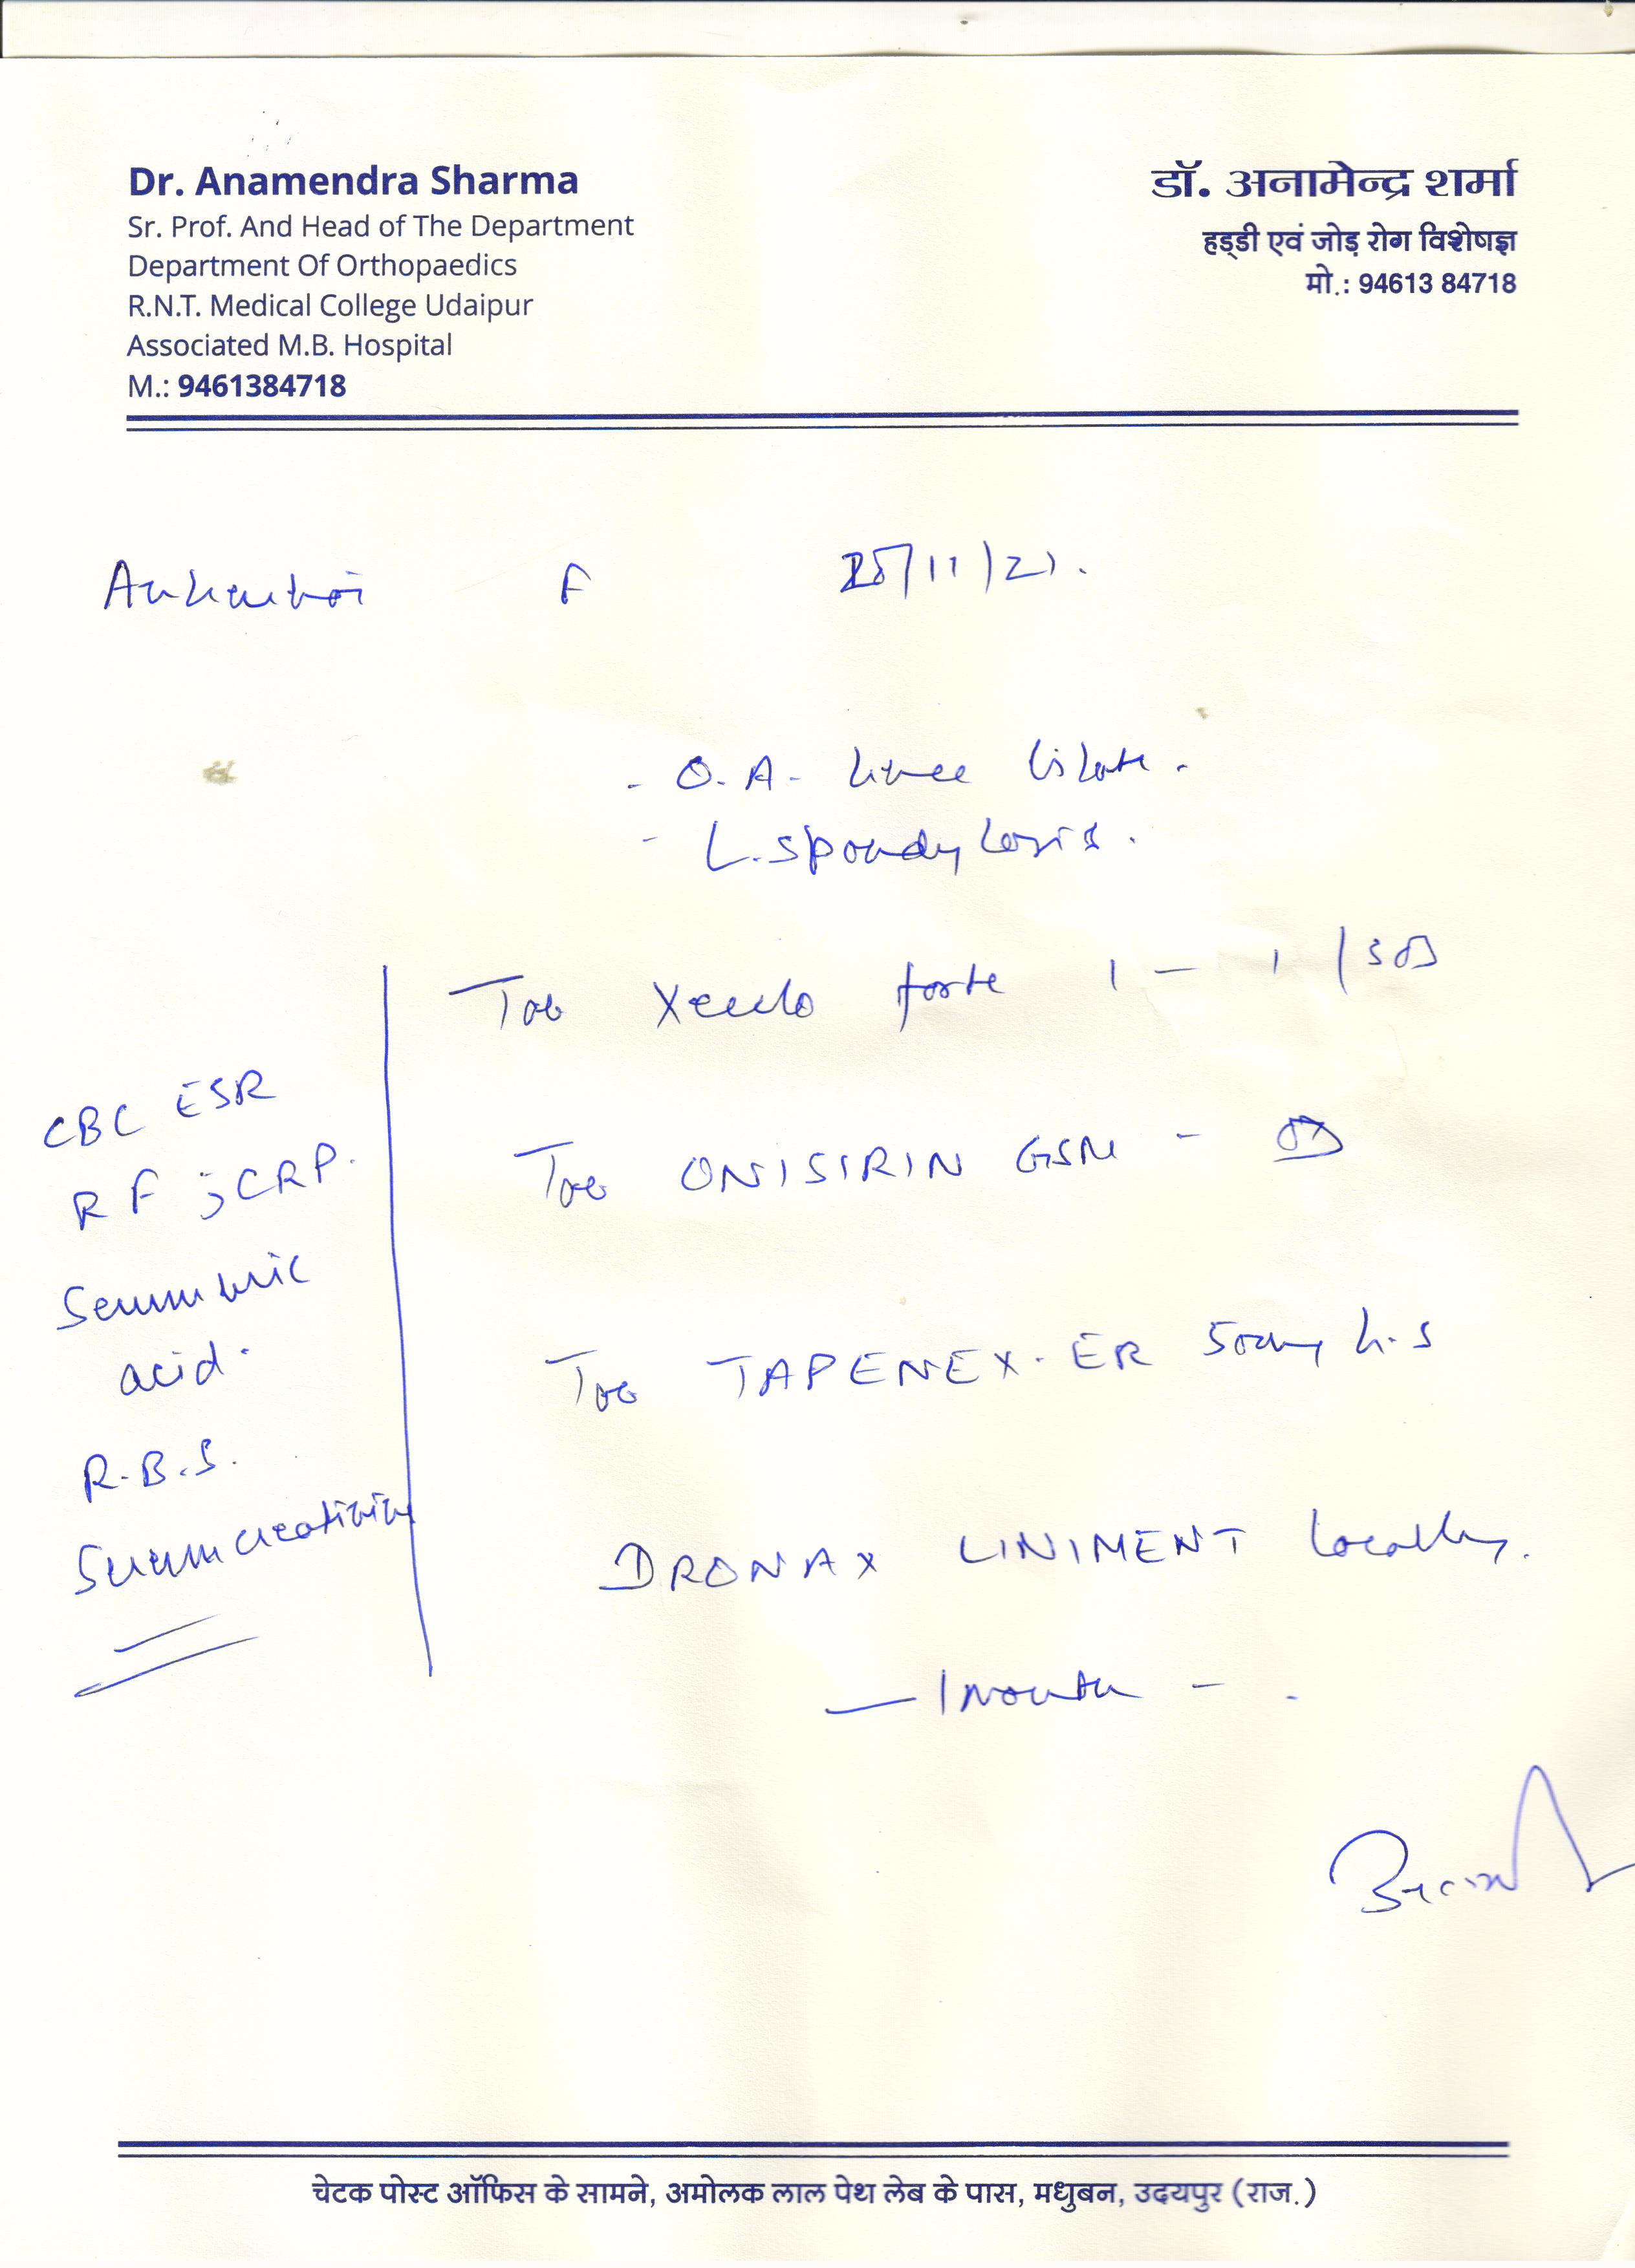 Dr. Anamendra Sharma
Sr. Prof. And Head of The Department
Department Of Orthopaedics
R.N.T. Medical College Udaipur
Associated M.B. Hospital
M.: 9461384718
डॉ. अनामेन्द्र शर्मा
हड्डी एवं जोड़ रोग विशेषज्ञ
मो.: 94613 84718
F 25/11/21.
- O.A- knee
- L.spondylosis.
Tab forte 1 - 1 /
Tab ONISIRIN GSM - OD
Tab TAPENEX-ER 50mg h.s
DRONAX LINIMENT locally.
- 1 month -
CBC ESR
RF ; CRP.
Serum uric
acid.
R.B.S.
Serum creatinin
चेटक पोस्ट ऑफिस के सामने, अमोलक लाल पेथ लेब के पास, मधुबन, उदयपुर (राज.)